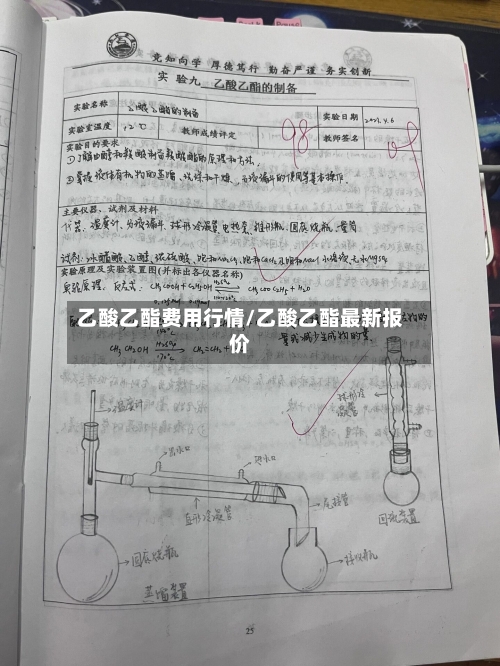 竞知向学 厚德笃行 勤奋严谨 务实创新
实 验九 乙酸乙酯的制备
实验名称 乙酸乙酯的制备 实验日期 2021.4.6
实验室温度 12℃ 教师成绩评定 98 教师签名
实验目的要求
①了解由醇和羧酸制备羧酸酯的原理和方法.
②掌握液体有机物的蒸馏、洗涤和干燥、分液漏斗的使用等基本操作.
主要仪器、试剂及材料
仪器、温度计、分液漏斗、球形冷凝管、电热套、锥形瓶、圆底烧瓶、量筒
试剂:冰醋酸、乙醇、浓硫酸、饱和Na₂CO₃
实验原理及实验装置图(并标出各仪器名称)
实验原理、反应式: CH₃COOH + C₂H₅OH ⇌ CH₃COOC₂H₅ + H₂O
乙酸乙酯费用行情/乙酸乙酯最新报
价
CH₃CH₂OH H₂SO₄ CH₂=CH₂
温度计
出水口
进水口
球形冷凝管
直形冷凝管
尾接管
圆底烧瓶
接收瓶
回流装置
蒸馏装置
25